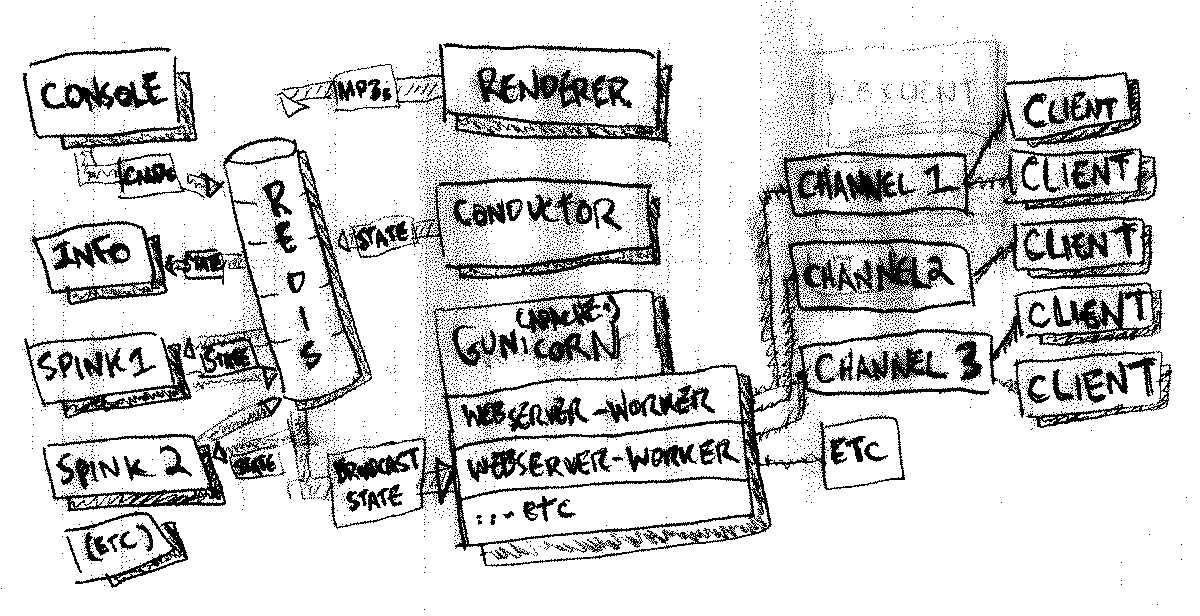 CONSOLE
CMDS
INFO
STATE
SPINK 1
STATE
SPINK 2
STATE
(ETC)
REDIS
MP3s
RENDERER
STATE
CONDUCTOR
(APACHE?)
GUNICORN
WEBSERVER-WORKER
WEBSERVER-WORKER
... etc
BROADCAST
STATE
CHANNEL 1
CHANNEL 2
CHANNEL 3
ETC
CLIENT
CLIENT
CLIENT
CLIENT
CLIENT